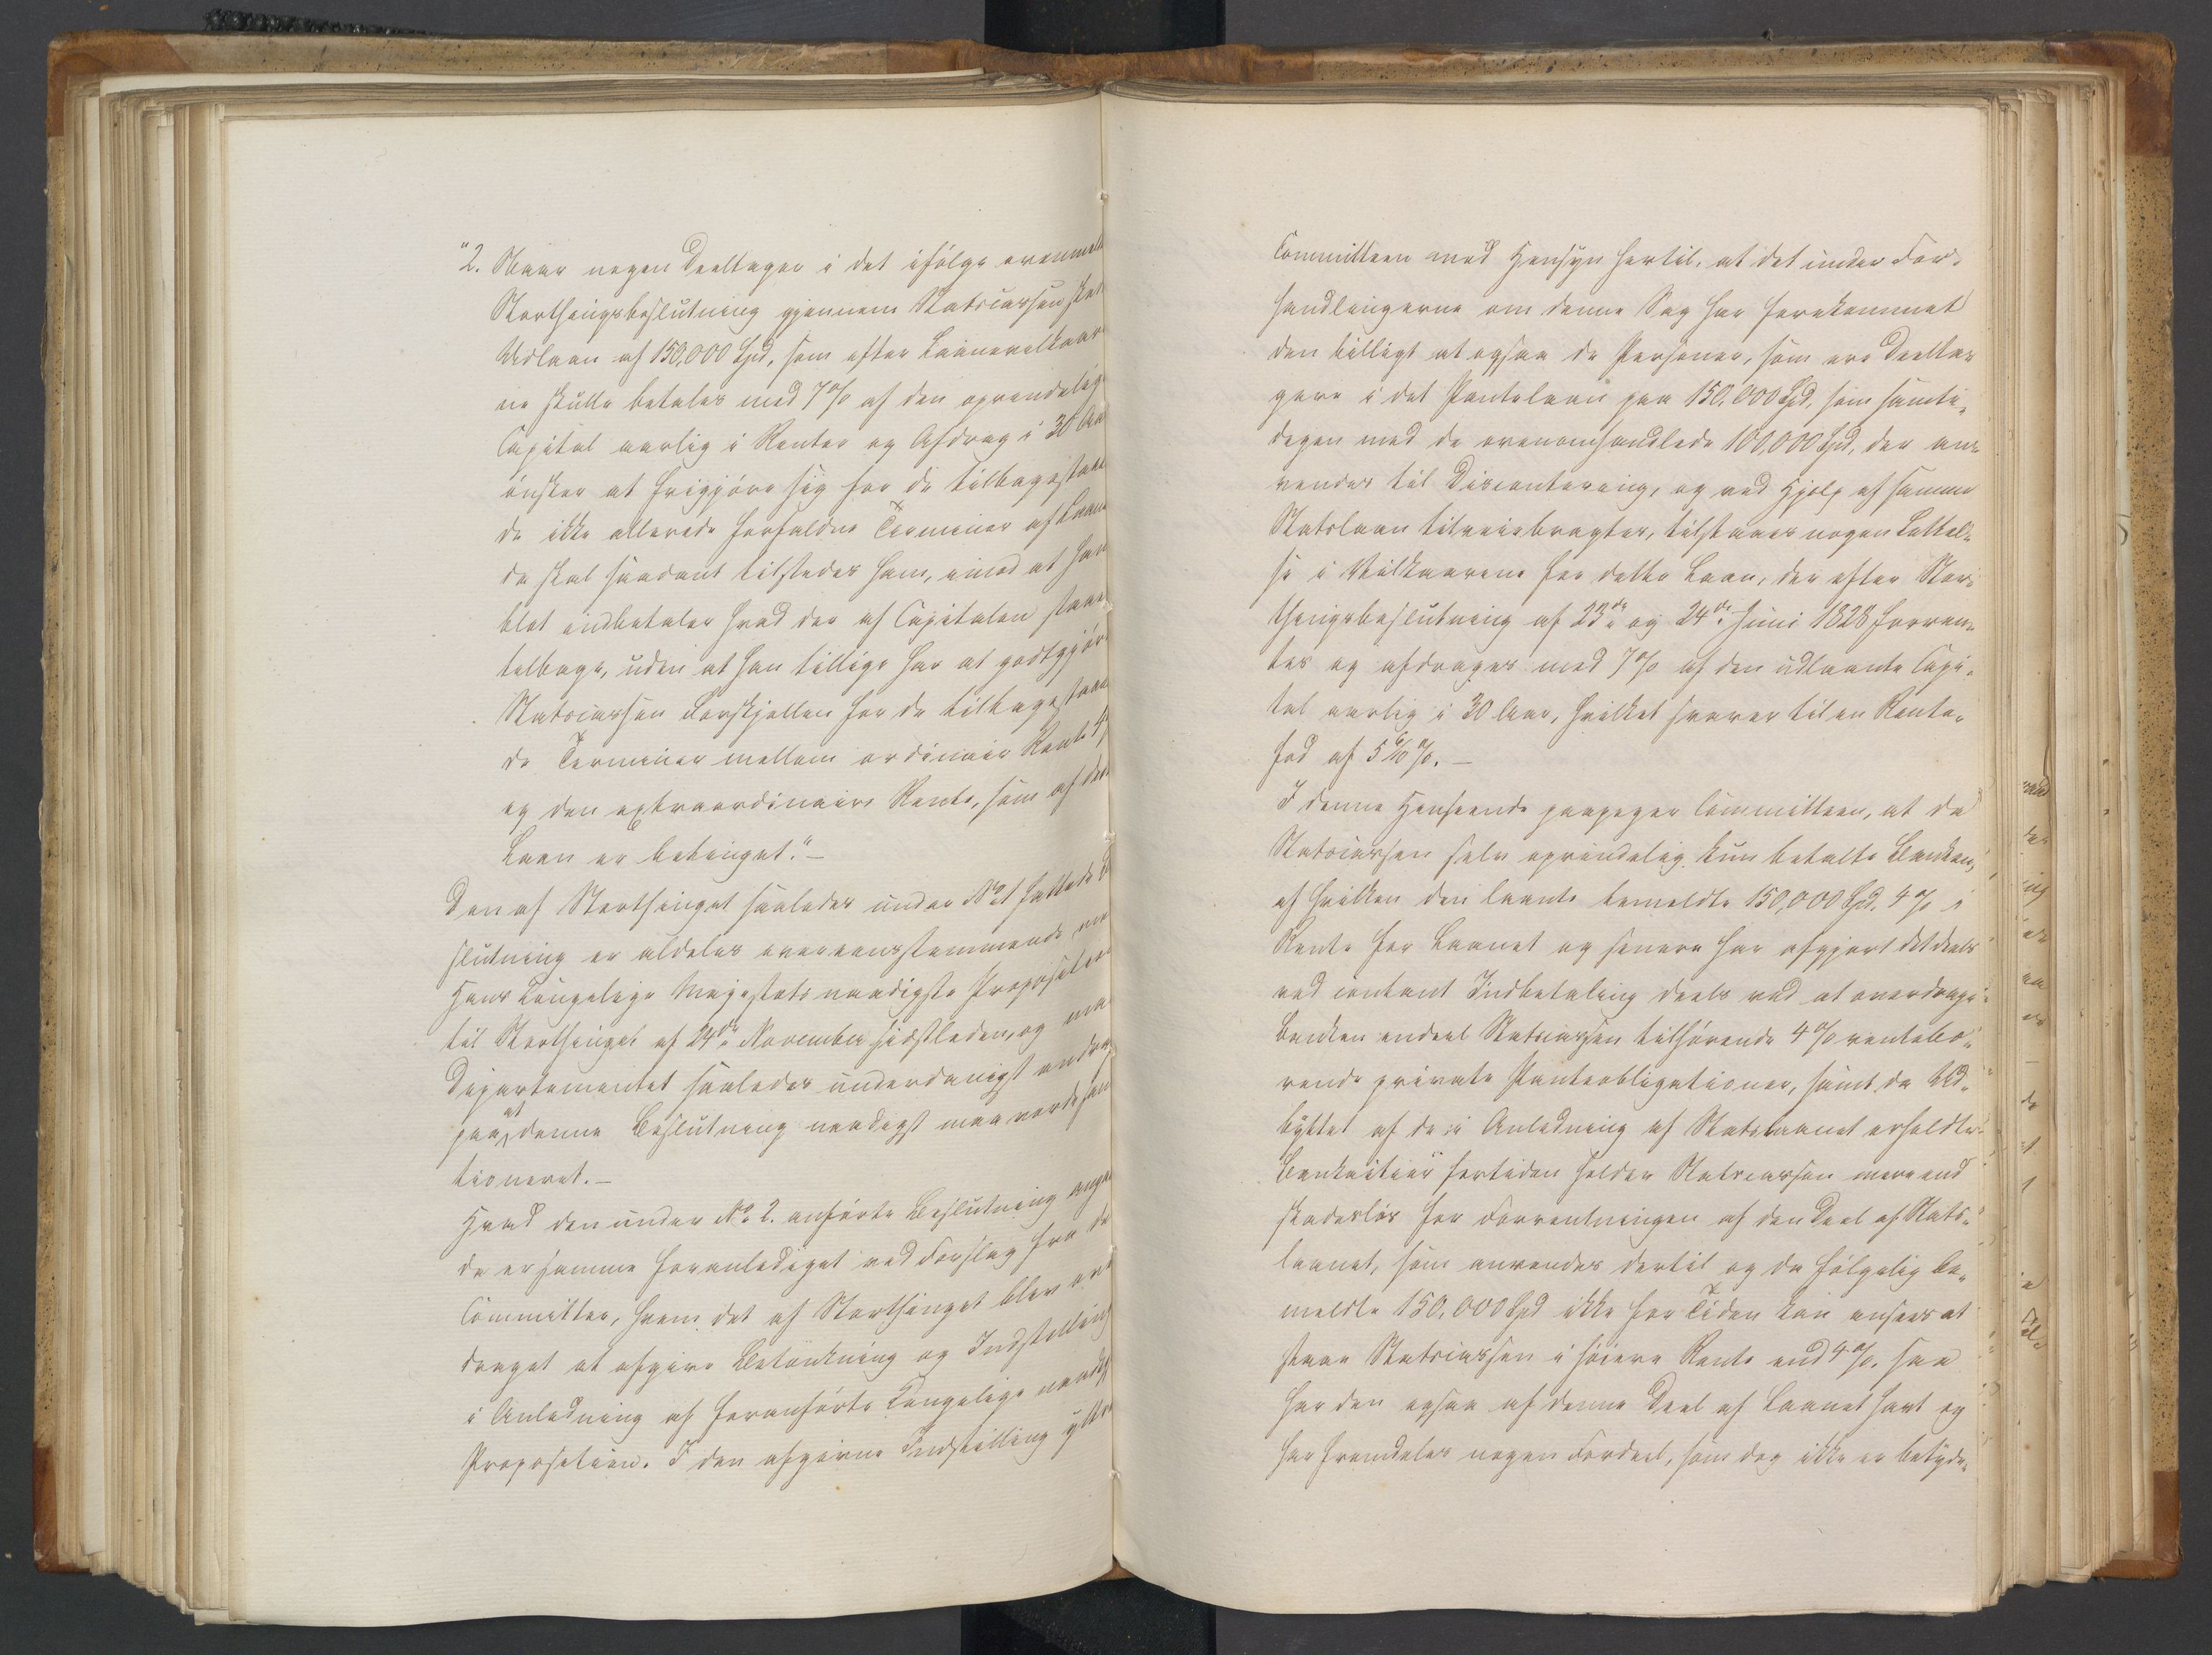 "2. Naar nogen Deeltager i det ifølge ovenmel
Storthingsbeslutning gjennem Statscassen skee
Udlaan af 150,000 Spd, som efter Laanevilkaar
ne skulle betales med 7% af den oprindelig
Capital aarlig i Renter og Afdrag i 30 Aar
ønsker at frigjøre sig for de tilbagestaae
de ikke allerede forfaldne Terminer af Laane
da skal saadant tilstedes ham, imod at han
blot indbetaler hvad der af Capitalen staae
tilbage, uden at han tillige har at godtgjør
Statscassen Forskjellen for de tilbagestaae
de Terminer mellem ordinair Rente 4%
og den extraordinaire Rente, som af dee
Laan er betinget."—
Den af Storthinget saaledes under No 1 fattede B
slutning er aldeles overeensstemmende me
Hans Kongelige Majestæts naadigste Proposition
til Storthinget af 24de November sidstleden, og maa
Departementet saaledes underdanigst andra
paa, at denne Beslutning naadigst maa vorde san
tioneret.—
Hvad den under No 2. anførte Beslutning anga
da er samme foranlediget ved Forslag fra de
Committee, hvem det af Storthinget blev over
draget at afgive Betænkning og Indstilling
i Anledning af foranførte Kongelige naadigst
Proposition. I den afgivne Indstilling ytter
Committeen med Hensyn hertil, at det under For-
handlingerne om denne Sag har forekommet
den billigt at ogsaa de Personer, som ere Deelta-
gere i det Pantelaan paa 150,000 Spd, som samti-
digen med de ovenomhandlede 100,000 Spd, der an-
vendes til Discontering, og ved Hjelp af samme
Statslaan tilveiebragtes, tilstaaes nogen Lettel-
se i Vilkaarene for dette Laan, der efter Stor-
thingsbeslutning af 23de og 24de Juni 1828 forren-
tes og afdrages med 7% af den udlaante Capi-
tal aarlig i 30 Aar, hvilket svarer til en Rente-
fod af 5 6/10 %.—
I denne Henseende paapeger Committeen, at da
Statscassen selv oprindelig kun betalte Banken,
af hvilken den laante bemeldte 150,000 Spd. 4% i
Rente for Laanet og senere har afgjort det deels
ved contant Indbetaling deels ved at overdrage
Banken endeel Statscassen tilhørende 4% rentebæ-
rende private Panteobligationer, samt da Ud-
byttet af de i Anledning af Statslaanet erholdte
Bankactier fortiden holder Statscassen mere end
skadesløs for Forrentningen af den Deel af Stats-
laanet, som anvendes dertil og da følgelig be-
meldte 150,000 Spd ikke for Tiden kan ansees at
staae Statscassen i høiere Rente end 4%, saa
har den ogsaa af denne Deel af Laanet havt og
har fremdeles nogen Fordeel, som dog ikke er betyde-